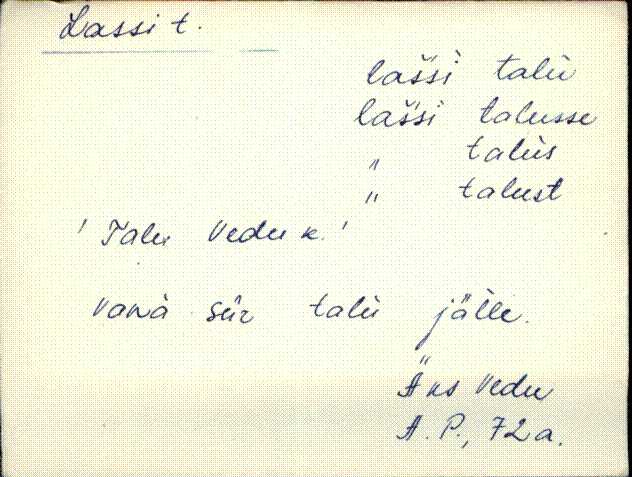 Lassi t.
lašsi talu
lašsi talusse
" talus
" talust
'Talu Vedu k.'
vana sur talu jälle.
Äks Vedu
A. P., 72a.